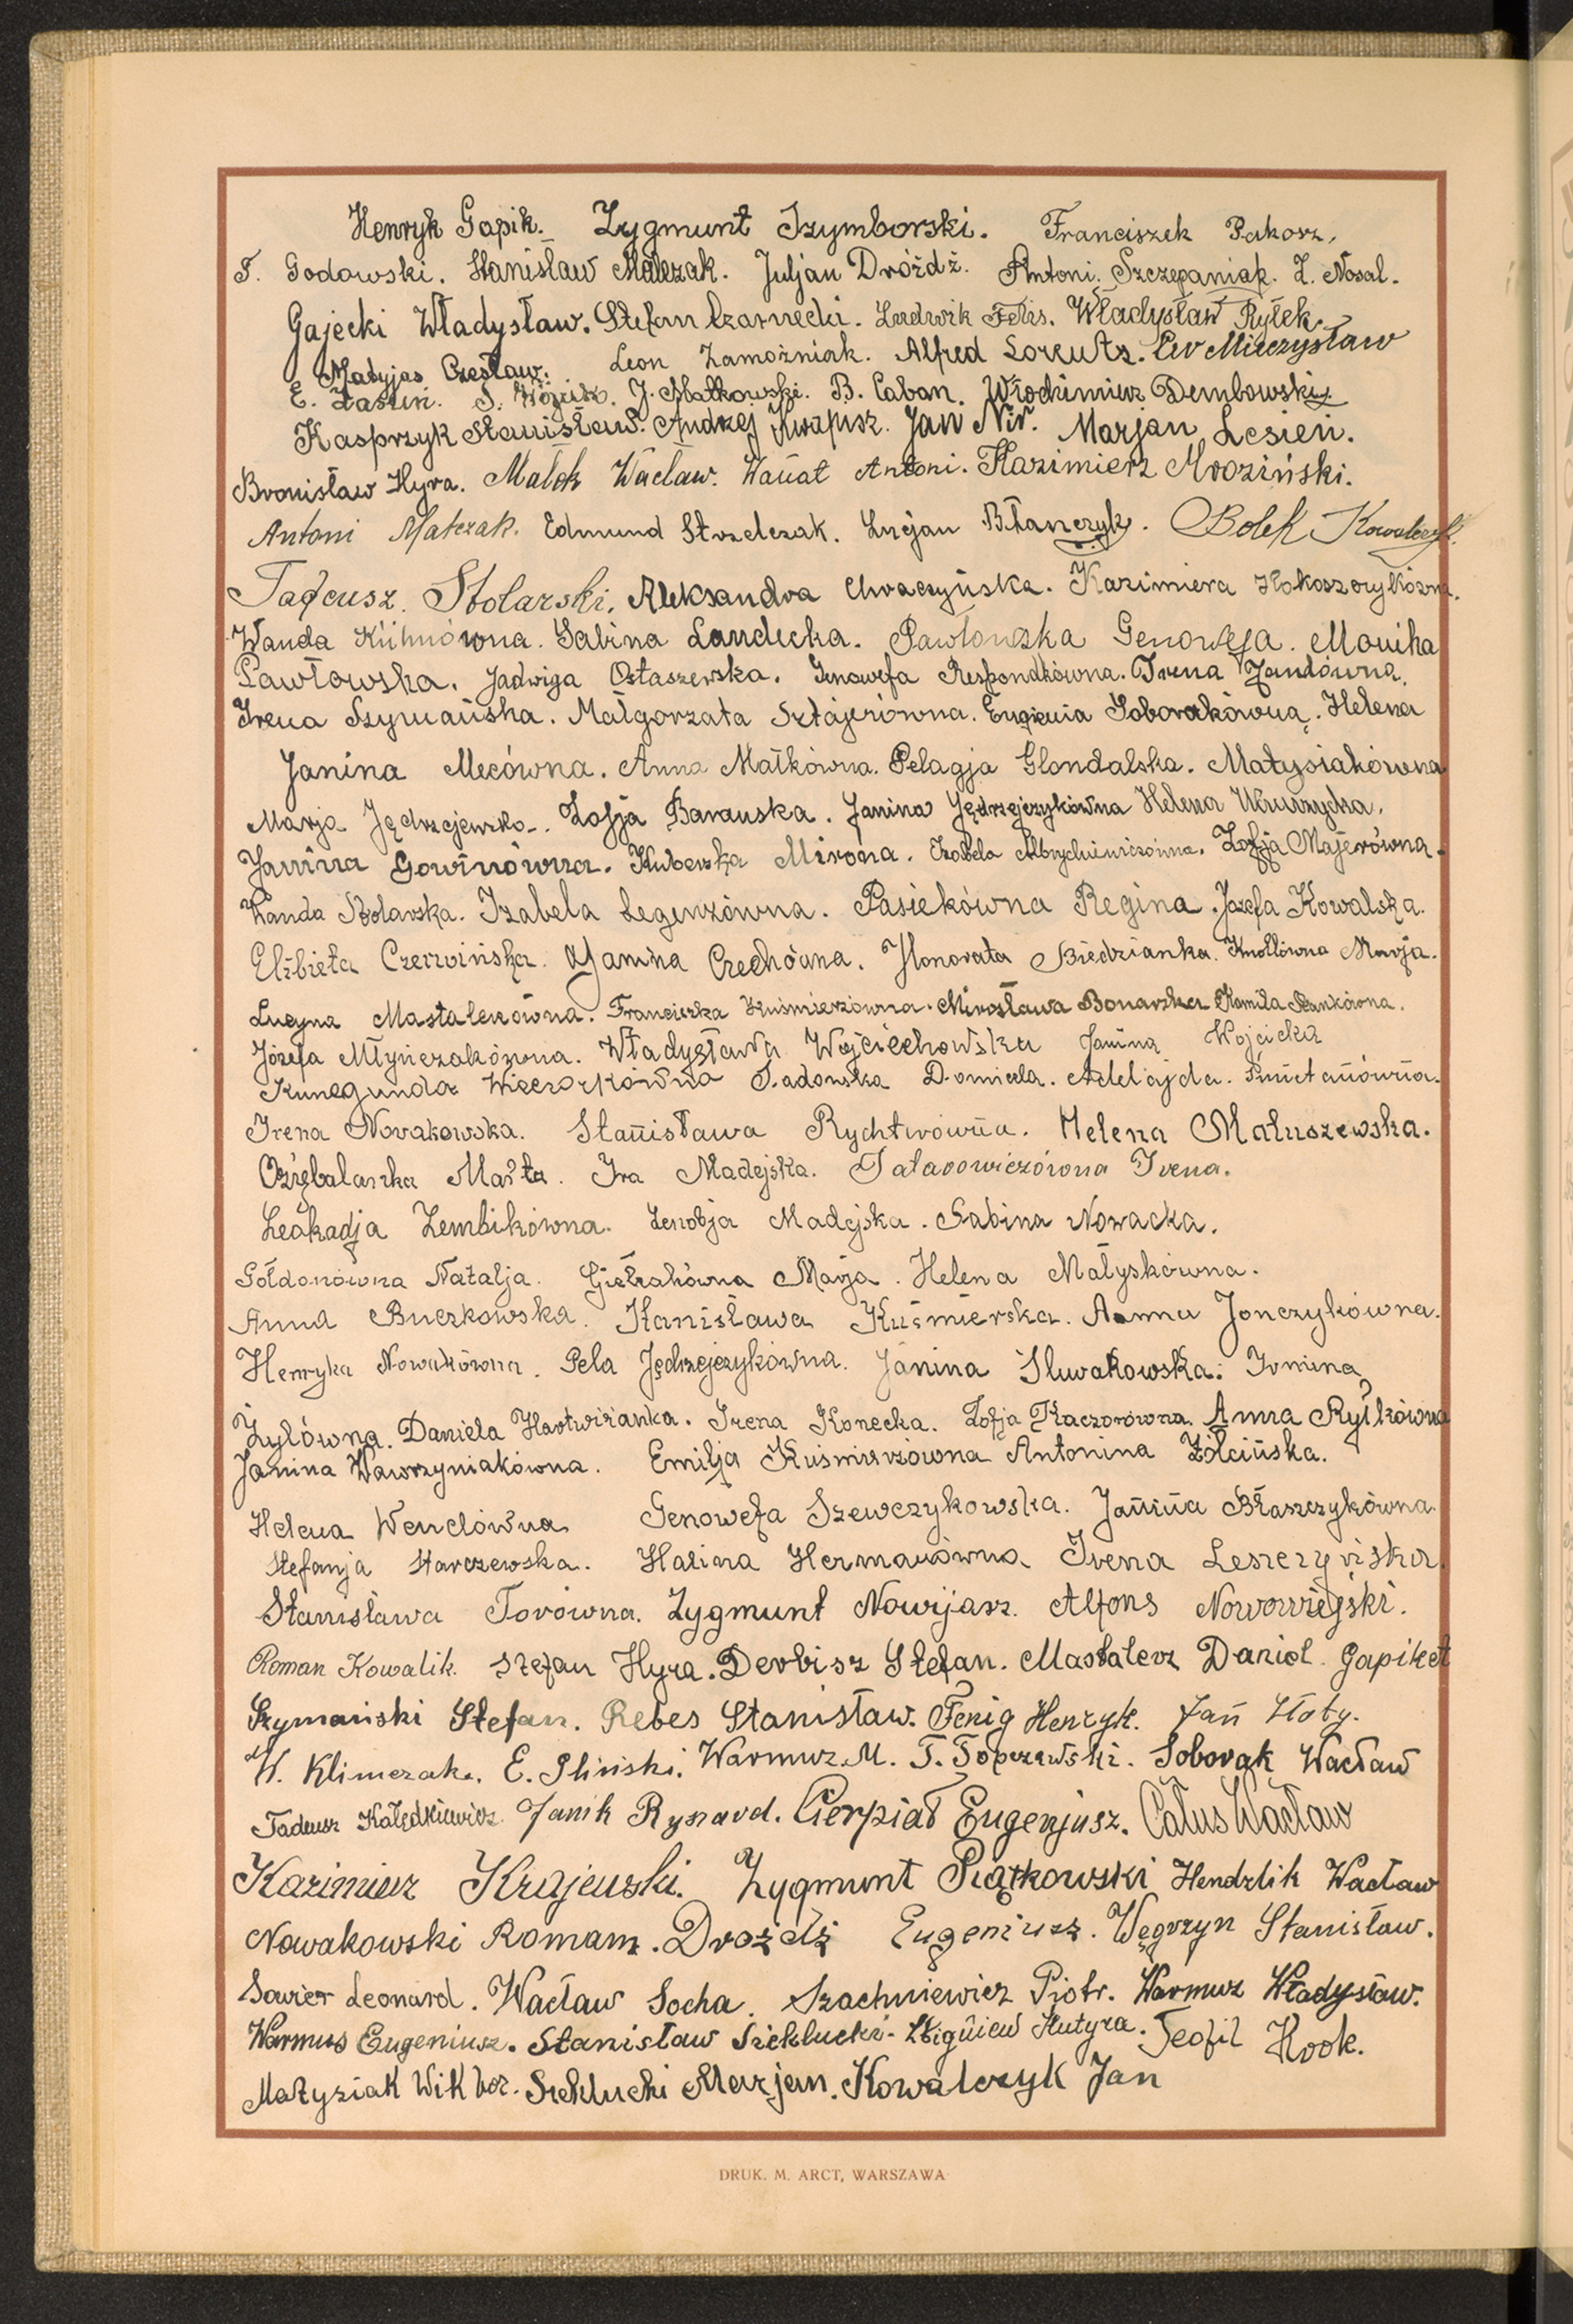 Henryk Gapik. Zygmunt Szymborski. Franciszek Pakosz,
F. Godowski. Stanisław Malczak. Juljan Dróżdż. Antoni Szczepaniak. Z. Nosal.
Gajecki Władysław. Stefan Czarnecki. Ludwik Felis. Władysław Ryłek.
Matyjas Czesław. Leon Zamożniak. Alfred Lorentz. Mieczysław
E. S. Wójcik. J. Matkowski. B. Caban. Włodzimierz Dembowski.
Kasprzyk Stanisław. Andrzej Kwapisz. Jan Nir. Marjan Lesień.
Bronisław Hyra. Malek Wacław. Wanat Antoni. Kazimierz Mroziński.
Antoni Matczak. Edmund Strzelczak. Lucjan Błanczyk. Bolek Kowalczyk.
Tadeusz Stolarski. Aleksandra Chraczyńska. Kazimiera
Wanda Kühnówna. Sabina Landecka. Pawłowska Genowefa. Monika
Pawłowska. Jadwiga Ostaszewska. Genowefa Respondkówna. Irena Jandówna.
Irena Szymańska. Małgorzata Sztajerówna. Eugienia Soborakówna. Helena
Janina Mecówna. Anna Małkówna. Pelagja Glondalska. Matysiakówna
Marja Jędrzejewska. Zofja Barańska. Janina Jędrzejczykówna Helena
Janina Gowinówna. Kuberska Mirona. Izabela Zofja Majerówna.
Wanda Stolarska. Izabela Legenzówna. Pasiekówna Regina. Józefa Kowalska.
Elżbieta Czerwińska. Janina Czechówna. Honorata Biedzianka. Knollówna Marja.
Lucyna Mastalerzówna. Franciszka Kuśmierzówna. Mirosława Bonarska Kamila Stankówna.
Józefa Młyńczakówna. Władysława Wojciechowska Janina Wojcicka
Kunegunda Wieczorkówna Sadowska Domicela. Adelajda. Śmietanówna.
Irena Nowakowska. Stanisława Rychtrówna. Helena Matuszewska.
Marta. Ira Madejska. Tatarowiczówna Irena.
Leokadja Zembikówna. Zenobja Madejska. Sabina Nowacka.
Gołdonówna Natalja. Gietrakówna Marja. Helena Małyskówna.
Anna Buczkowska. Stanisława Kuśmierska. Anna Jonczykówna.
Henryka Nowakówna. Pela Jędrzejczykówna. Janina Sluwakowska. Irmina
Żyłówna. Daniela Hartwiżanka. Irena Konecka. Zofja Kaczorówna. Anna Ryłkówna
Janina Wawrzyniakówna. Emilja Kuśmierzówna Antonina Żółcińska.
Helena Wendówna Genowefa Szewczykowska. Janina Błaszczykówna.
Stefanja Starczewska. Halina Hermanówna Irena Leszczyńska.
Stanisława Torówna. Zygmunt Nowijarz. Alfons Nowowiejski.
Roman Kowalik. Stefan Hyra. Derbisz Stefan. Mastalerz Daniel. Gapiket
Szymański Stefan. Rebes Stanisław. Fenig Henryk. Jan Złoty.
W. Klimczak. E. Śliński. Warmuz. M. T. Topczewski. Soborak Wacław
Tadeusz Kolędkiewicz. Janik Rynard. Cierpiał Eugenjusz. Całus Wacław
Kazimierz Krajewski. Zygmunt Piątkowski Hendzlik Wacław
Nowakowski Roman. Drożdż Eugeniusz. Węgrzyn Stanisław.
Sowier Leonard. Wacław Socha. Szachniewicz Piotr. Warmuz Władysław.
Warmus Eugeniusz. Stanisław Sieklucki. Zbigniew Hutyra. Teofil Kook.
Małysiak Wiktor. Sieklucki Marjan. Kowalczyk Jan
DRUK. M. ARCT, WARSZAWA